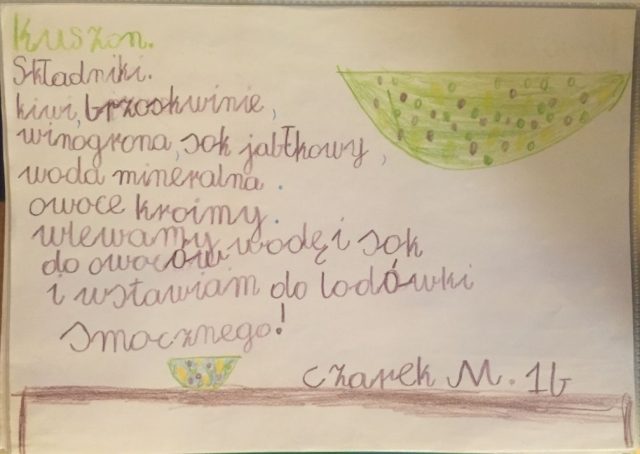 Kuszon.
Składniki.
kiwi, brzoskwinie,
winogrona, sok jabłkowy,
woda mineralna.
owoce kroimy.
wlewamy wodę i sok
do owoców
i wstawiam do lodówki
smacznego!
Czarek M. 1b